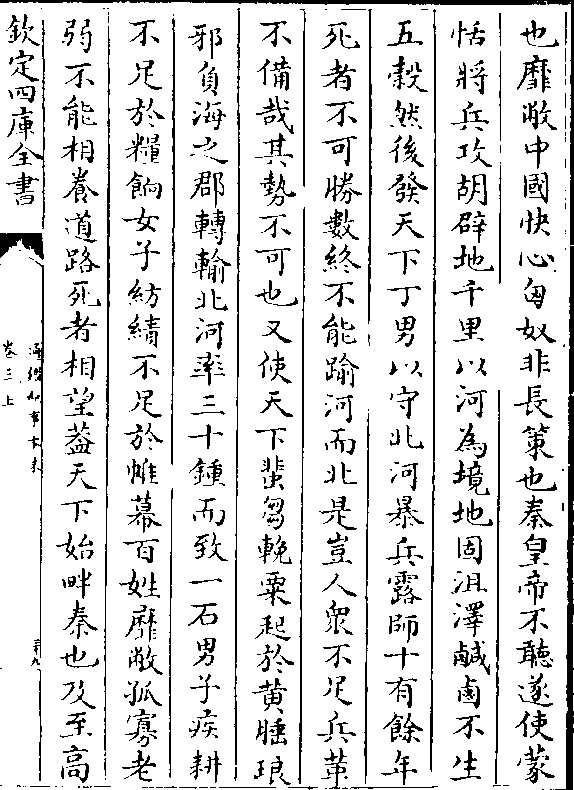 也靡敝中國快心匈奴非長策也秦皇帝不聽遂使蒙
恬將兵攻胡辟地千里以河為境地固沮澤鹹鹵不生
五榖然後發天下丁男以守北河暴兵露師十有餘年
死者不可勝數終不能踰河而北是豈人衆不足兵革
不備哉其勢不可也又使天下蜚芻輓粟起於黄腄琅
邪負海之郡轉輸北河率三十鍾而致一石男子疾耕
不足於糧餉女子紡績不足於帷幕百姓靡敝孤寡老
弱不能相養道路死者相望葢天下始畔秦也及至高
欽定四庫全書
通鑑紀事本末
卷三上
三十九